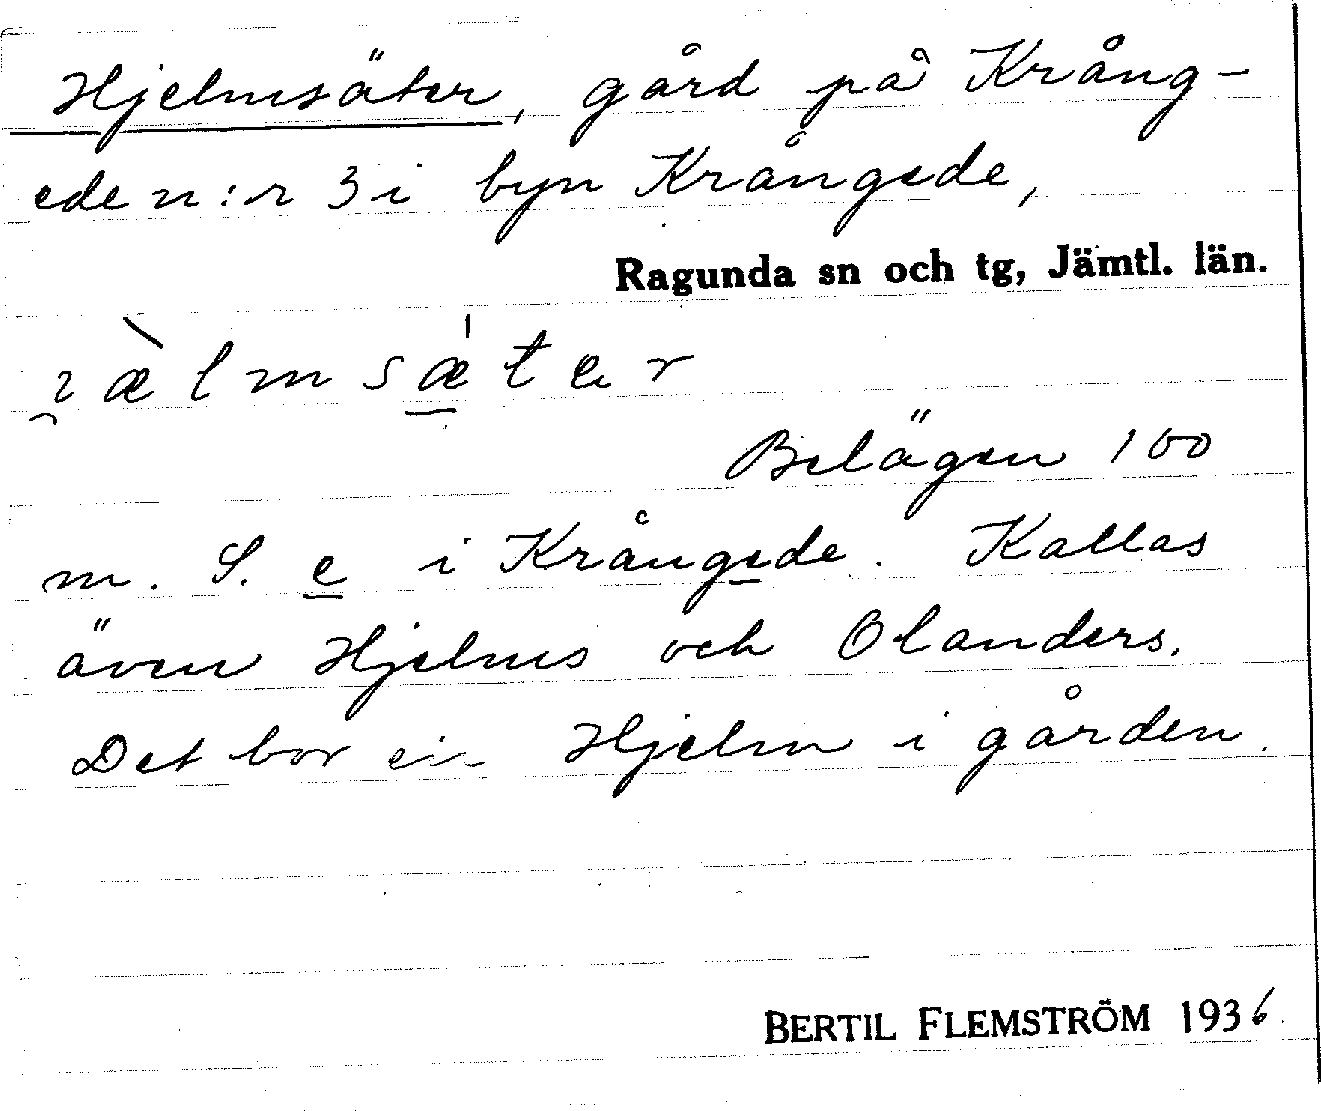 Hjelmsäter, gård på Krång-
ede n:r 3 i byn Krångede,
Ragunda sn och tg, Jämtl. län.
æ̀lmsæ̍ter
Belägen 100
m. S. e i Krångede. Kallas
även Hjelms och Olanders.
Det bor en Hjelm i gården.
BERTIL FLEMSTRÖM 1936